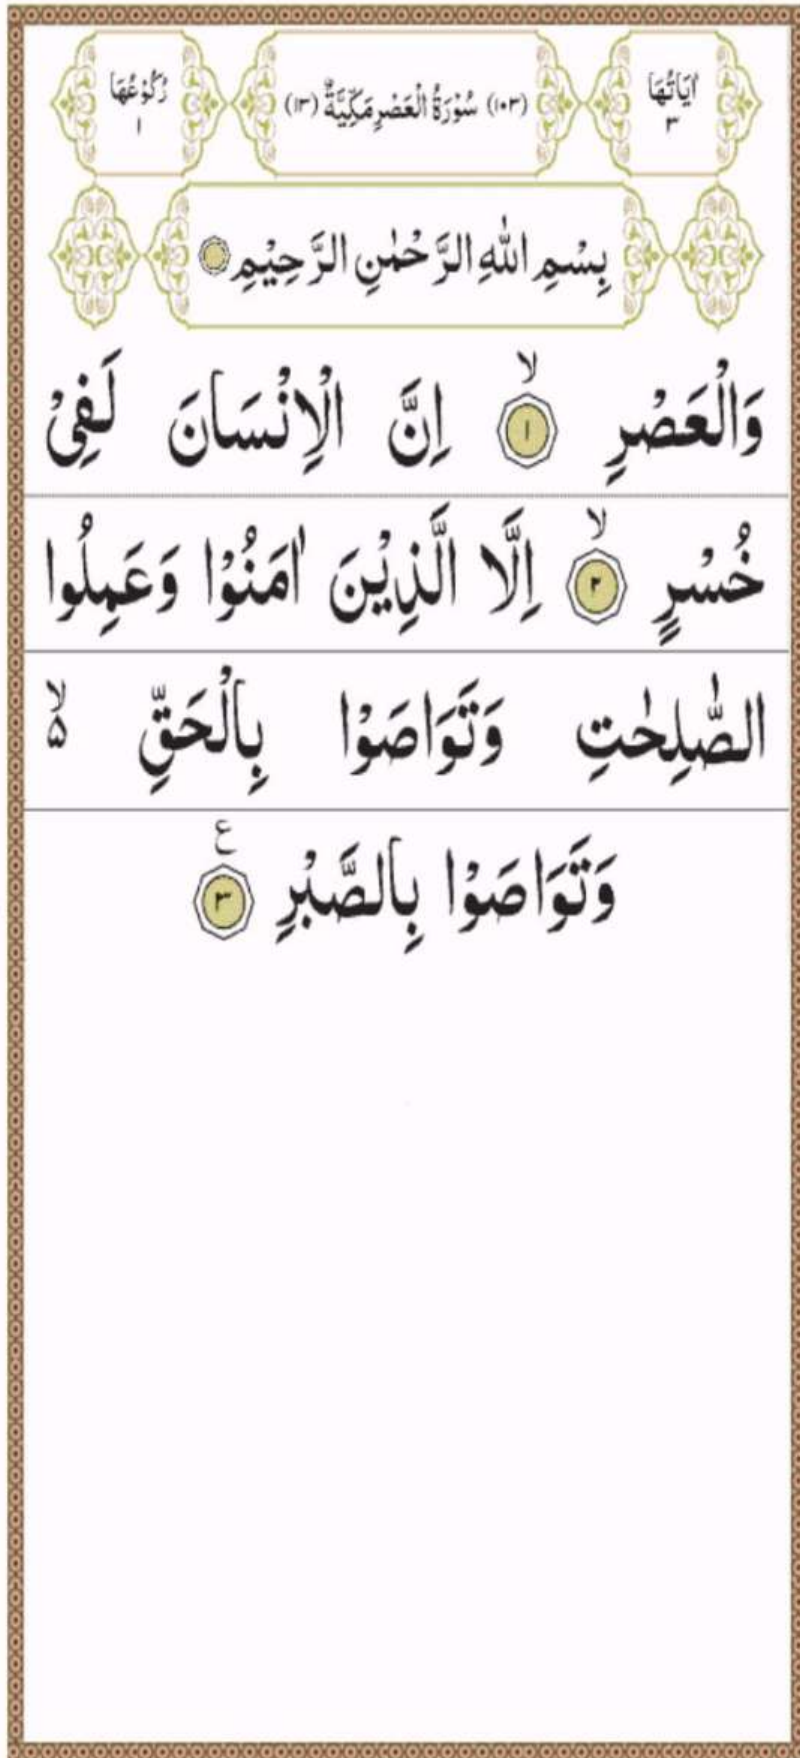 اٰيَاتُهَا ٣
(١٠٣) سُوْرَةُ الْعَصْرِ مَكِّيَّةٌ (١٣)
رُكُوْعُهَا ١
بِسْمِ اللّٰهِ الرَّحْمٰنِ الرَّحِيْمِ
وَالْعَصْرِ ۙ﴿١﴾ اِنَّ الْاِنْسَانَ لَفِيْ
خُسْرٍ ۙ﴿٢﴾ اِلَّا الَّذِيْنَ اٰمَنُوْا وَعَمِلُوا
الصّٰلِحٰتِ وَتَوَاصَوْا بِالْحَقِّ ۙ۵
وَتَوَاصَوْا بِالصَّبْرِ ﴿٣﴾ ع